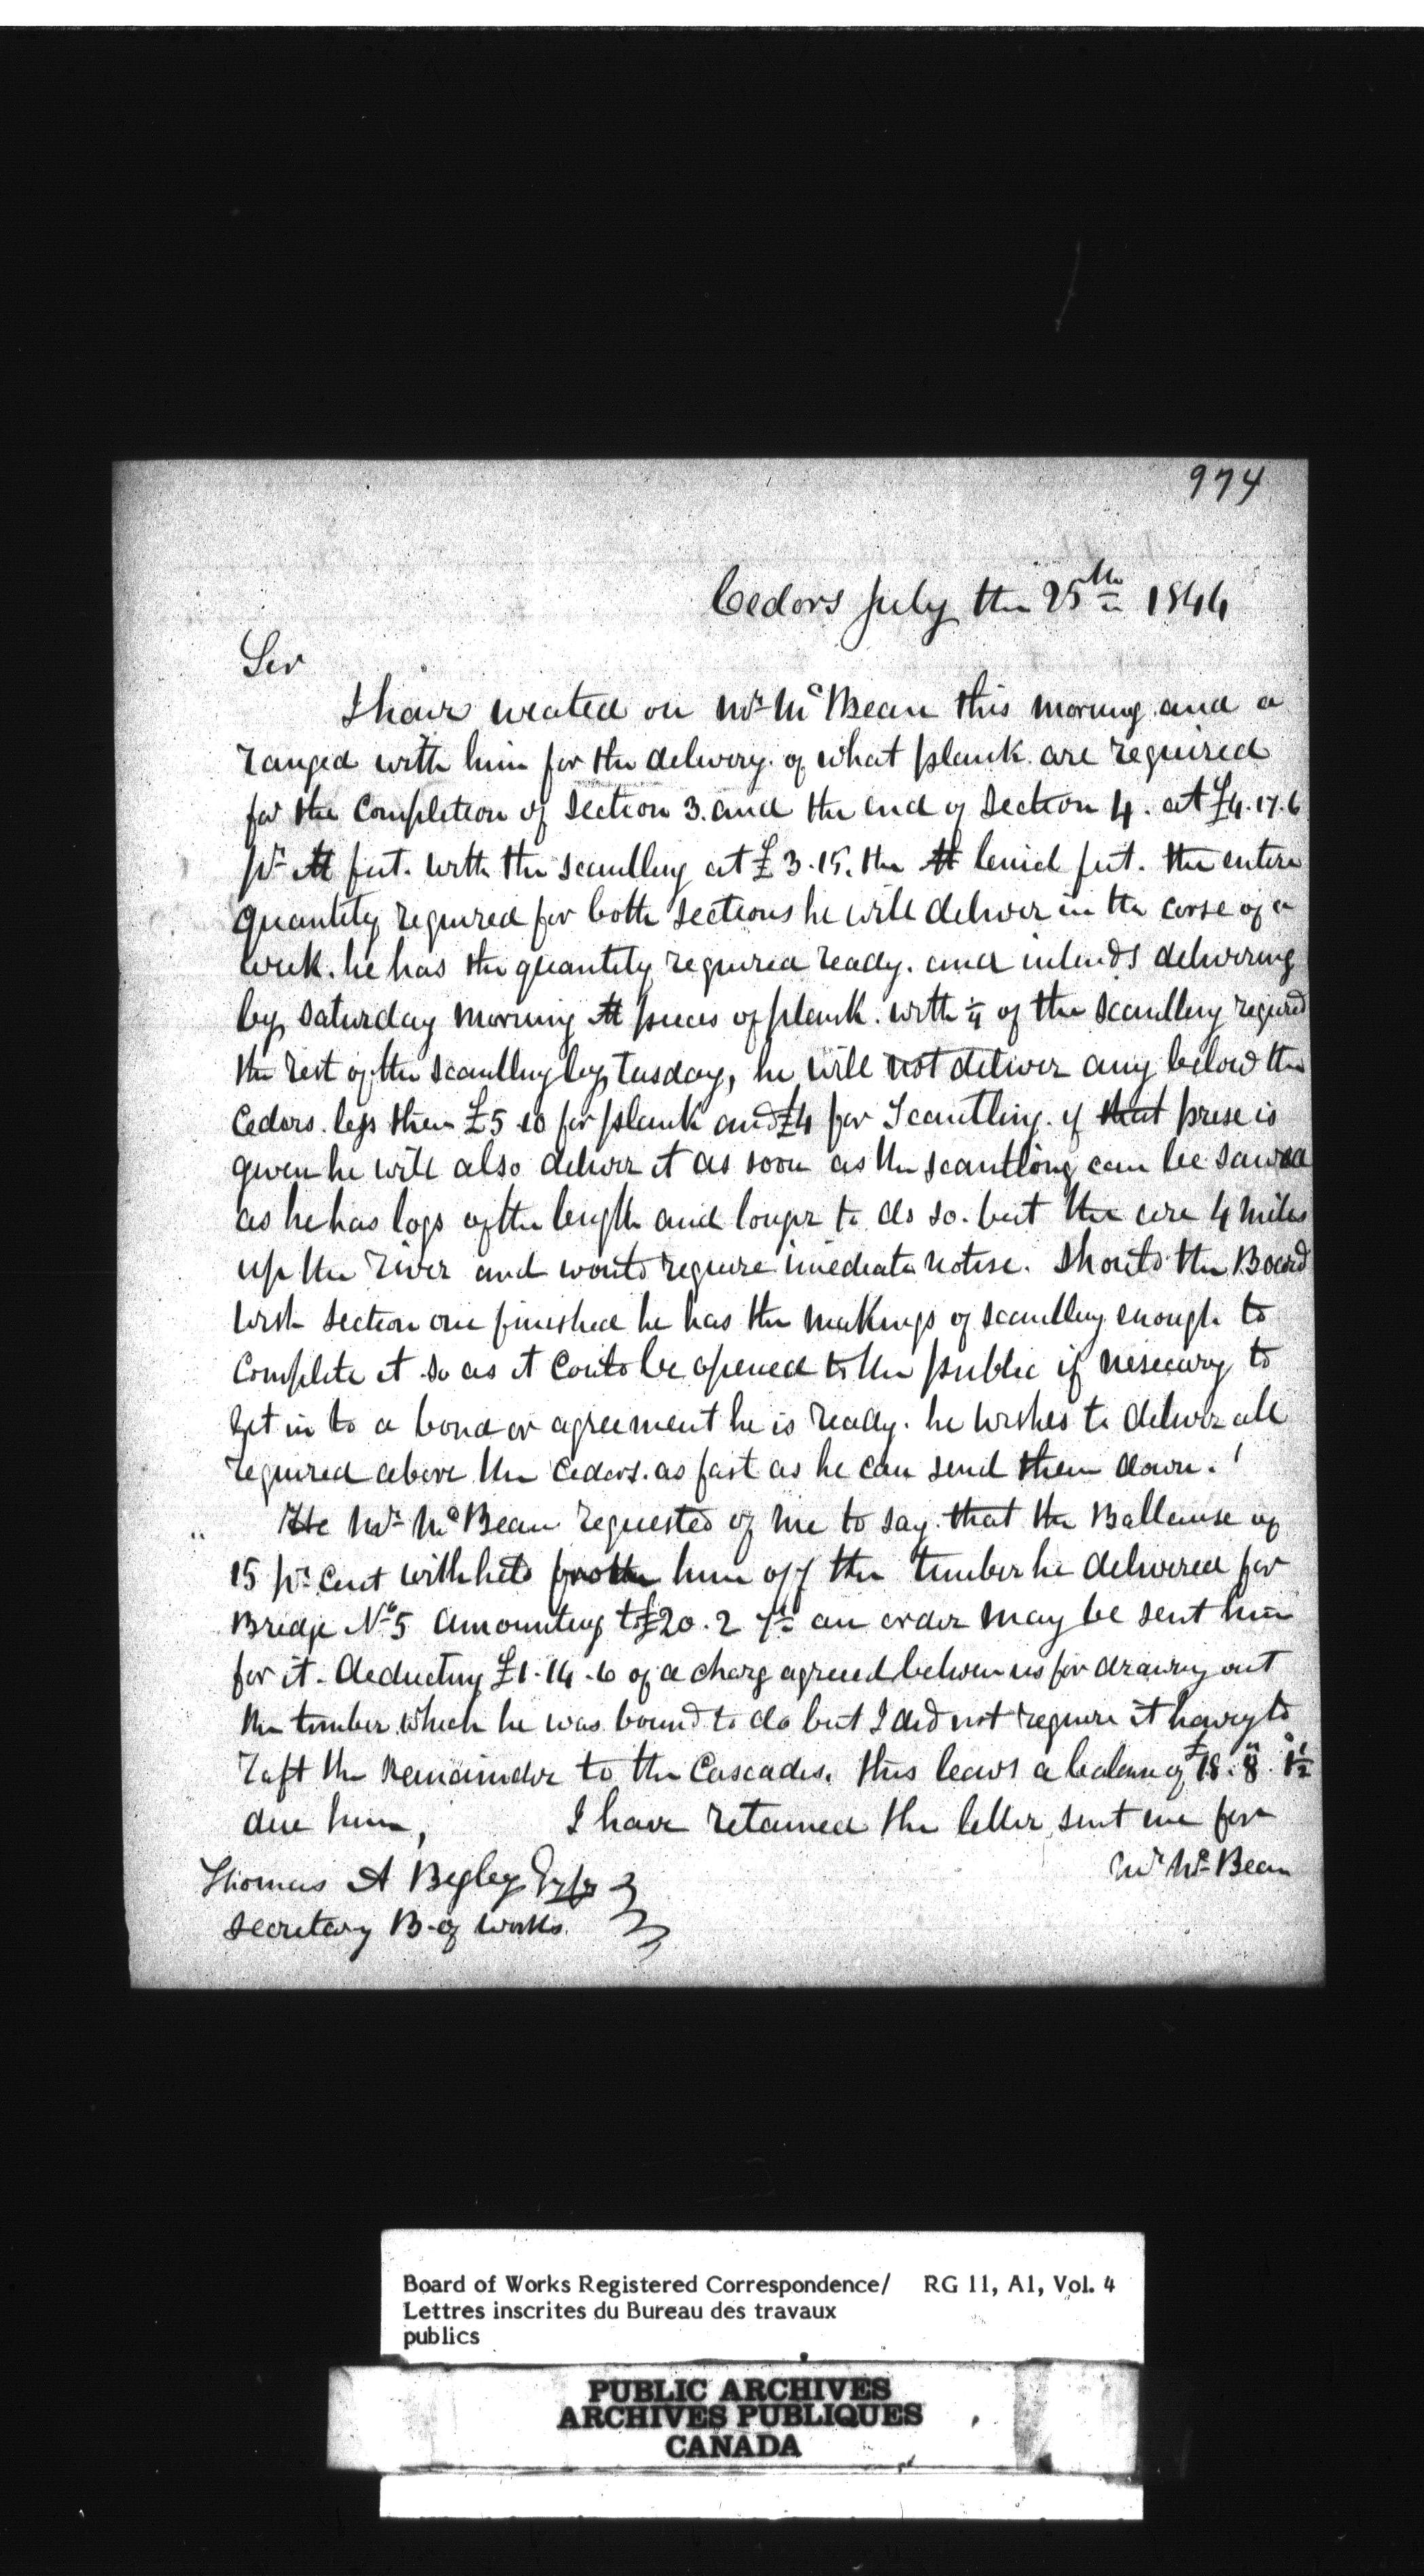 974
Cedors July the 25th 1844
Sir
I have weated on Mr McBean this morning and a
ranged with him for the delivery of what plank are required
for the Completion of Section 3. and the end of Section 4. at £4.17.6
pr M feet. with the scantling at £3.15. the M lenial feet. the entire
quantity required for both sections he will deliver in the corse of a
week. he has the quantity required ready. and intends delivering
by Saturday morning M pieces of plank. with ¼ of the scantling required
the rest of the scantling by Tusday, he will not deliver any below the
Cedors. less then £5 10 for plank and £4 for Scantling. if that prise is
given he will also deliver it as soon as the scantlong can be sawed
as he has logs of the length and longer to do so. but the are 4 miles
up the river and would require imediate notise. Should the Board
wish section one finished he has the makings of scantling enough to
Complete it so as it Could be opened to the public if nesecary to
get in to a bond or agreement he is ready. he wishes to deliver all
required above the Cedors. as fast as he can send them down.
He Mr McBean requested of me to say that the Ballanse of
15 pr Cent withheld him off the timber he delivered for
Bridge No 5 amounting to £20.2 an order may be sent him
for it. deducting £1.14.6 of a charg agreed between us for drawing out
the timber which he was bound to do but I did not require it having to
raft the Remainder to the Cascades. this leavs a balance of £18.8.1½
due him, I have retained the letter sent me for
Mr McBean
Thomas A Begley Esqr
Secretary B. of works.
Board of Works Registered Correspondence/ RG 11, A1, Vol. 4
Lettres inscrites du Bureau des travaux
publics
PUBLIC ARCHIVES
ARCHIVES PUBLIQUES
CANADA